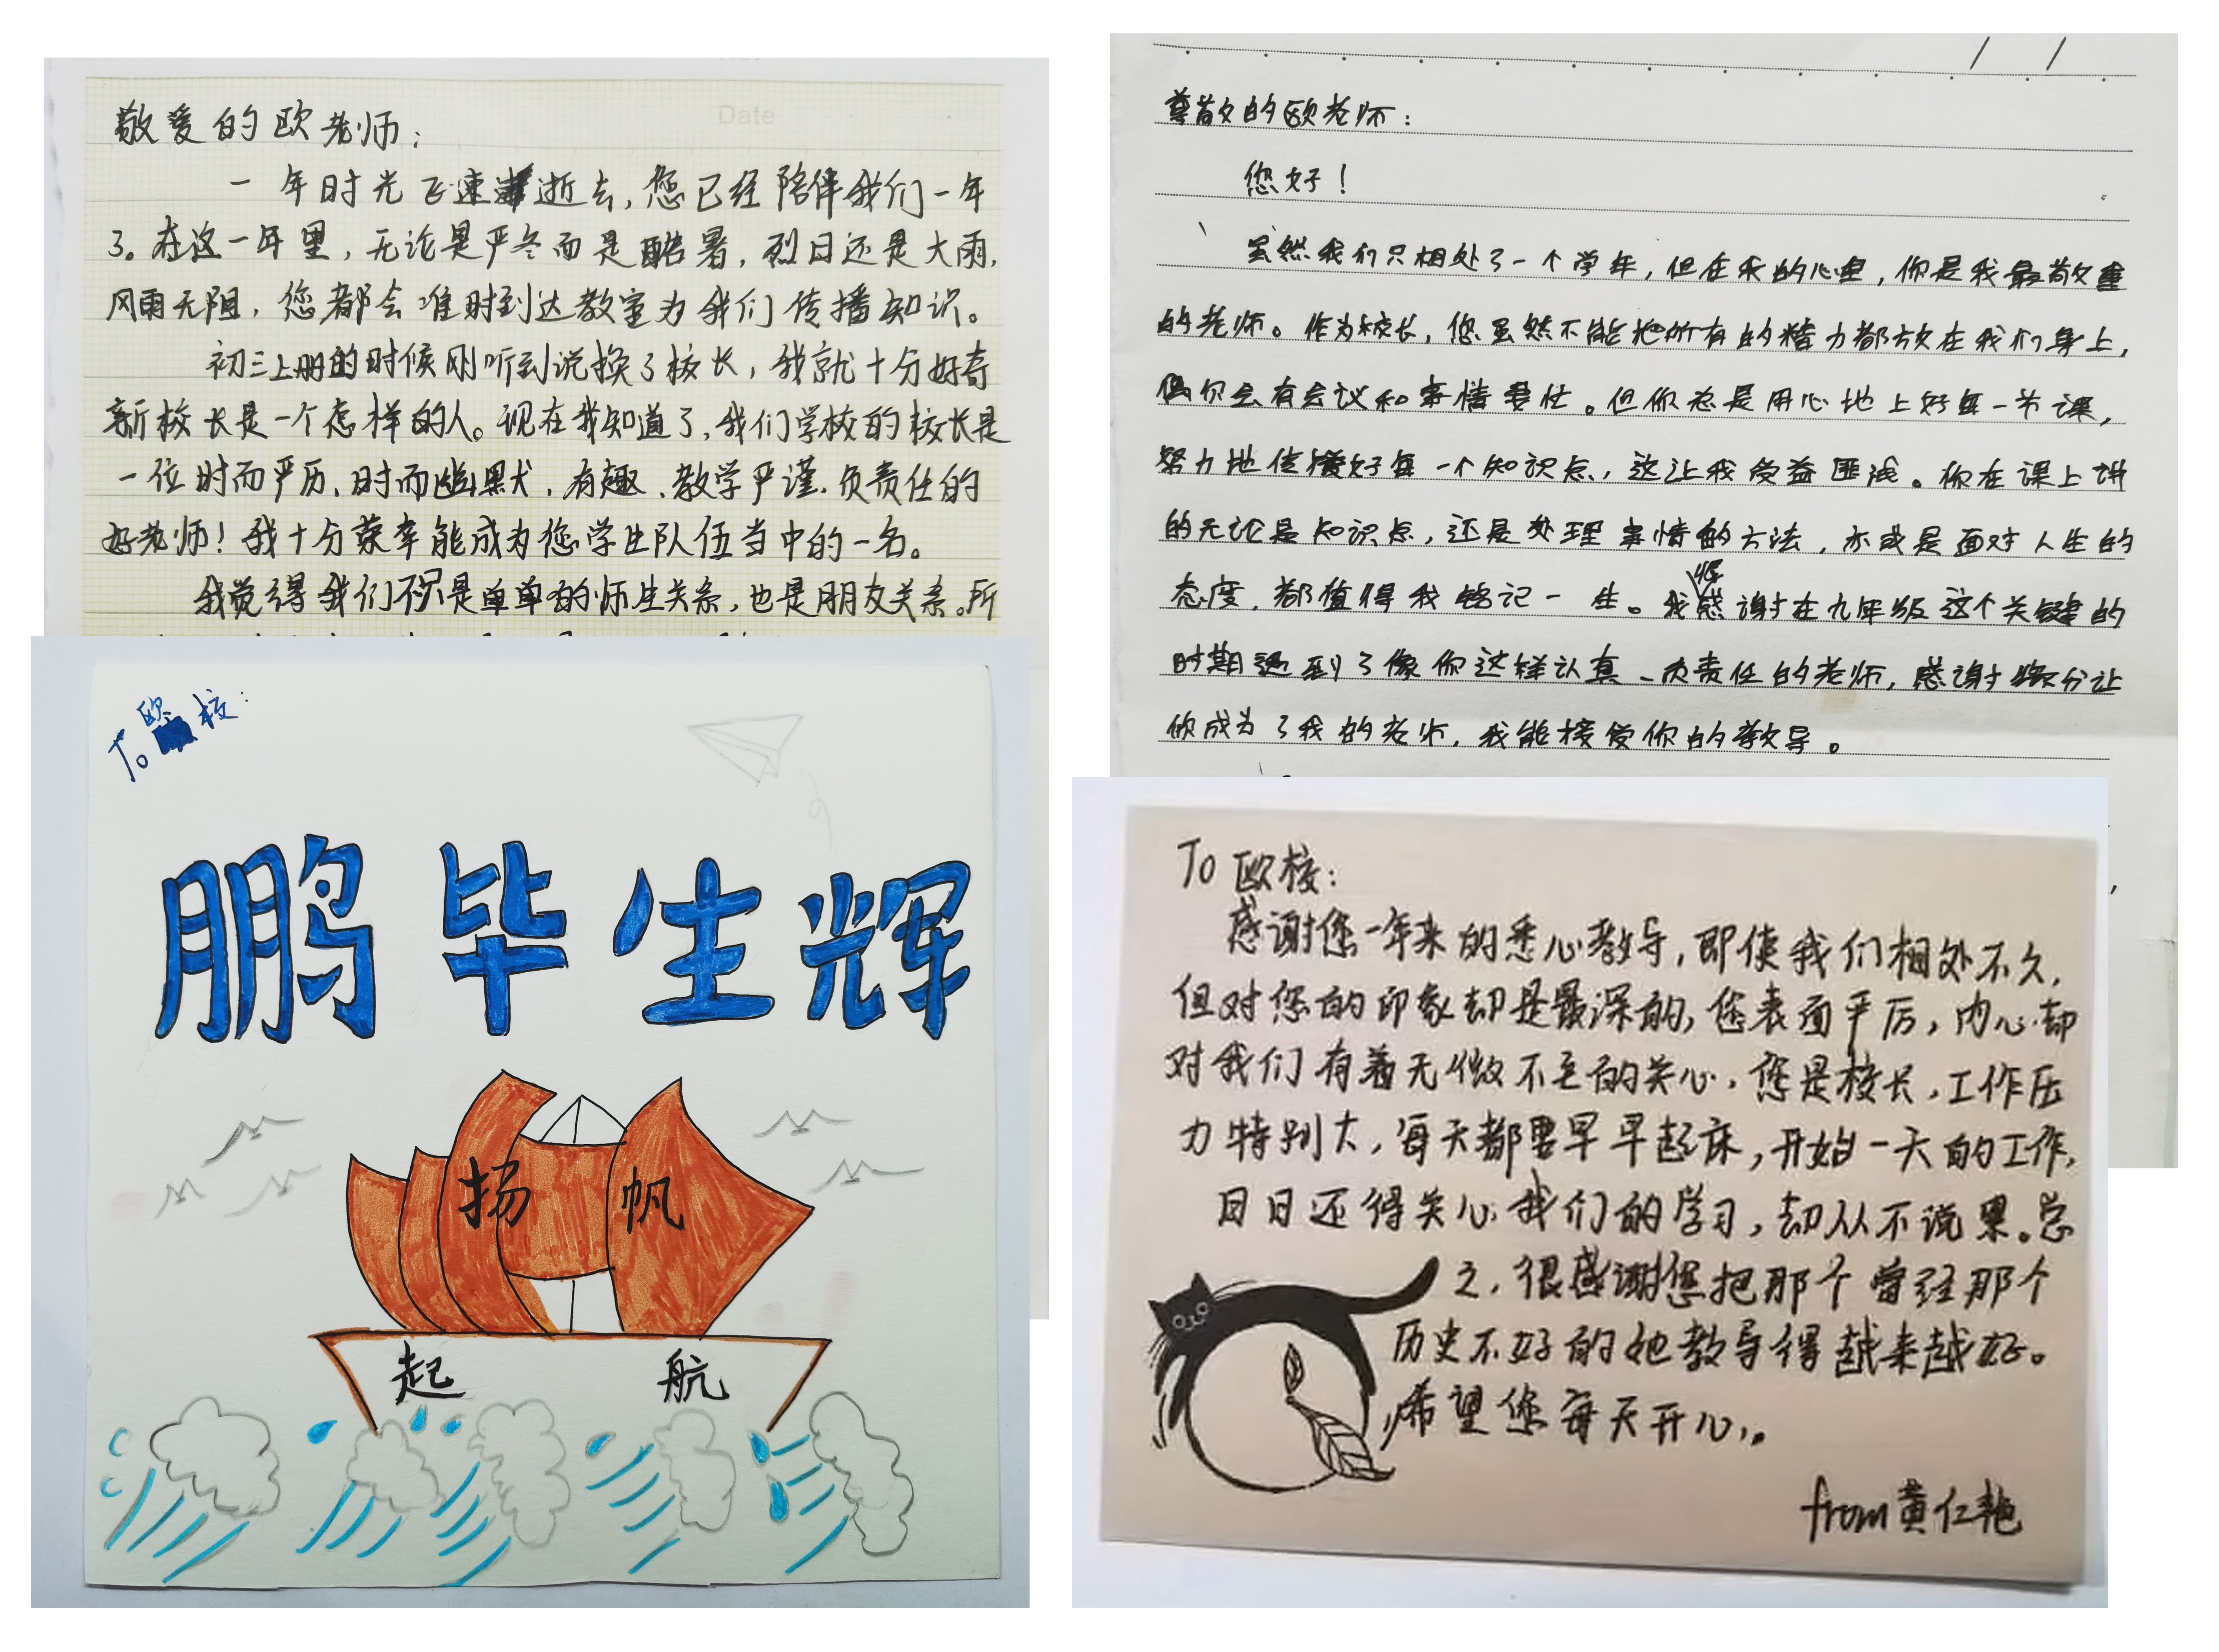 Date
敬爱的欧老师：
一年时光飞速逝去，您已经陪伴我们一年
了。在这一年里，无论是严冬而是酷暑，烈日还是大雨，
风雨无阻，您都会准时到达教室为我们传播知识。
初三上册的时候刚听到说换了校长，我就十分好奇
新校长是一个怎样的人。现在我知道了，我们学校的校长是
一位时而严历、时而幽默、有趣、教学严谨、负责任的
好老师！我十分荣幸能成为您学生队伍当中的一名。
我觉得我们不只是单单的师生关系，也是朋友关系。所
尊敬的欧老师：
您好！
虽然我们只相处了一个学年，但在我的心里，你是我最敬重
的老师。作为校长，您虽然不能把所有的精力都放在我们身上，
偶尔会有会议和事情要忙。但你总是用心地上好每一节课，
努力地传授好每一个知识点，这让我受益匪浅。你在课上讲
的无论是知识点，还是处理事情的方法，亦或是面对人生的
态度，都值得我铭记一生。我很感谢在九年级这个关键的
时期遇到了像你这样认真、负责任的老师，感谢缘分让
你成为了我的老师，我能接受你的教导。
To 欧校：
鹏毕生辉
扬帆
起航
To 欧校：
感谢您一年来的悉心教导，即使我们相处不久，
但对您的印象却是最深的，您表面严厉，内心却
对我们有着无微不至的关心，您是校长，工作压
力特别大，每天都要早早起床，开始一天的工作，
日日还得关心我们的学习，却从不说累。总
之，很感谢您把那个曾经那个
历史不好的她教导得越来越好。
希望您每天开心。
from 黄仁艳